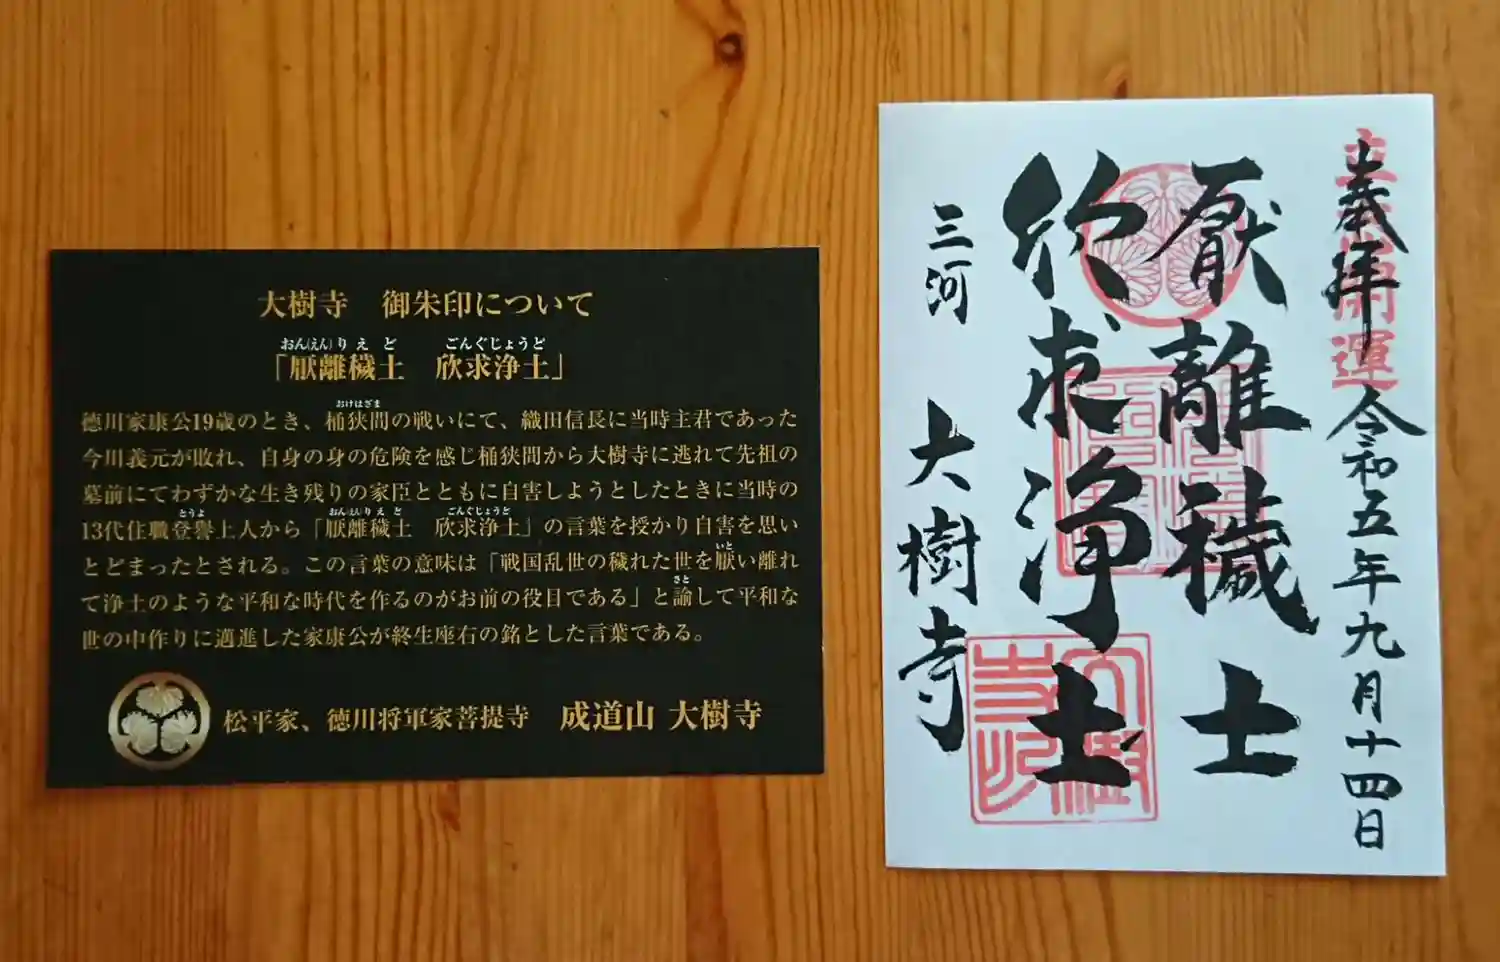 大樹寺　御朱印について
おん(えん)りえど　ごんぐじょうど
「厭離穢土　欣求浄土」
おけはざま
徳川家康公19歳のとき、桶狭間の戦いにて、織田信長に当時主君であった
今川義元が敗れ、自身の身の危険を感じ桶狭間から大樹寺に逃れて先祖の
墓前にてわずかな生き残りの家臣とともに自害しようとしたときに当時の
とうよ　おん(えん)りえど　ごんぐじょうど
13代住職登誉上人から「厭離穢土　欣求浄土」の言葉を授かり自害を思い
いと
とどまったとされる。この言葉の意味は「戦国乱世の穢れた世を厭い離れ
さと
て浄土のような平和な時代を作るのがお前の役目である」と諭して平和な
世の中作りに邁進した家康公が終生座右の銘とした言葉である。
松平家、徳川将軍家菩提寺　成道山 大樹寺
奉拝 令和五年九月十四日
開運
厭離穢土
欣求浄土
三河 大樹寺